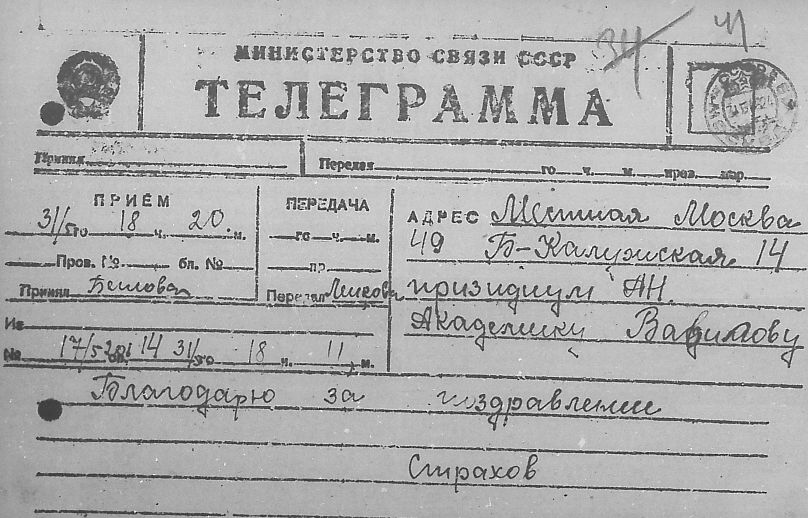 34 41
МИНИСТЕРСТВО СВЯЗИ СССР
ТЕЛЕГРАММА
Принял
Передал го ч. м. пров. мар.
ПРИЕМ
31/5 го 18 ч. 20 м.
Пров. № бл. №
Принял
ПЕРЕДАЧА
го ч. м.
пр
Передал
АДРЕС Местная Москва
49 Б-Калужская 14
призидиум АН.
Академику Вавилову
Из
№ 17/5 201 14 31/5 го 18 ч. 11 м.
Благодарю за поздравление
Страхов